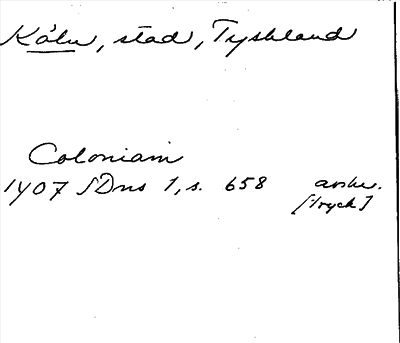 Köln, stad, Tyskland
Coloniam
1407 SDns 1, s. 658 avskr.
[tryck]